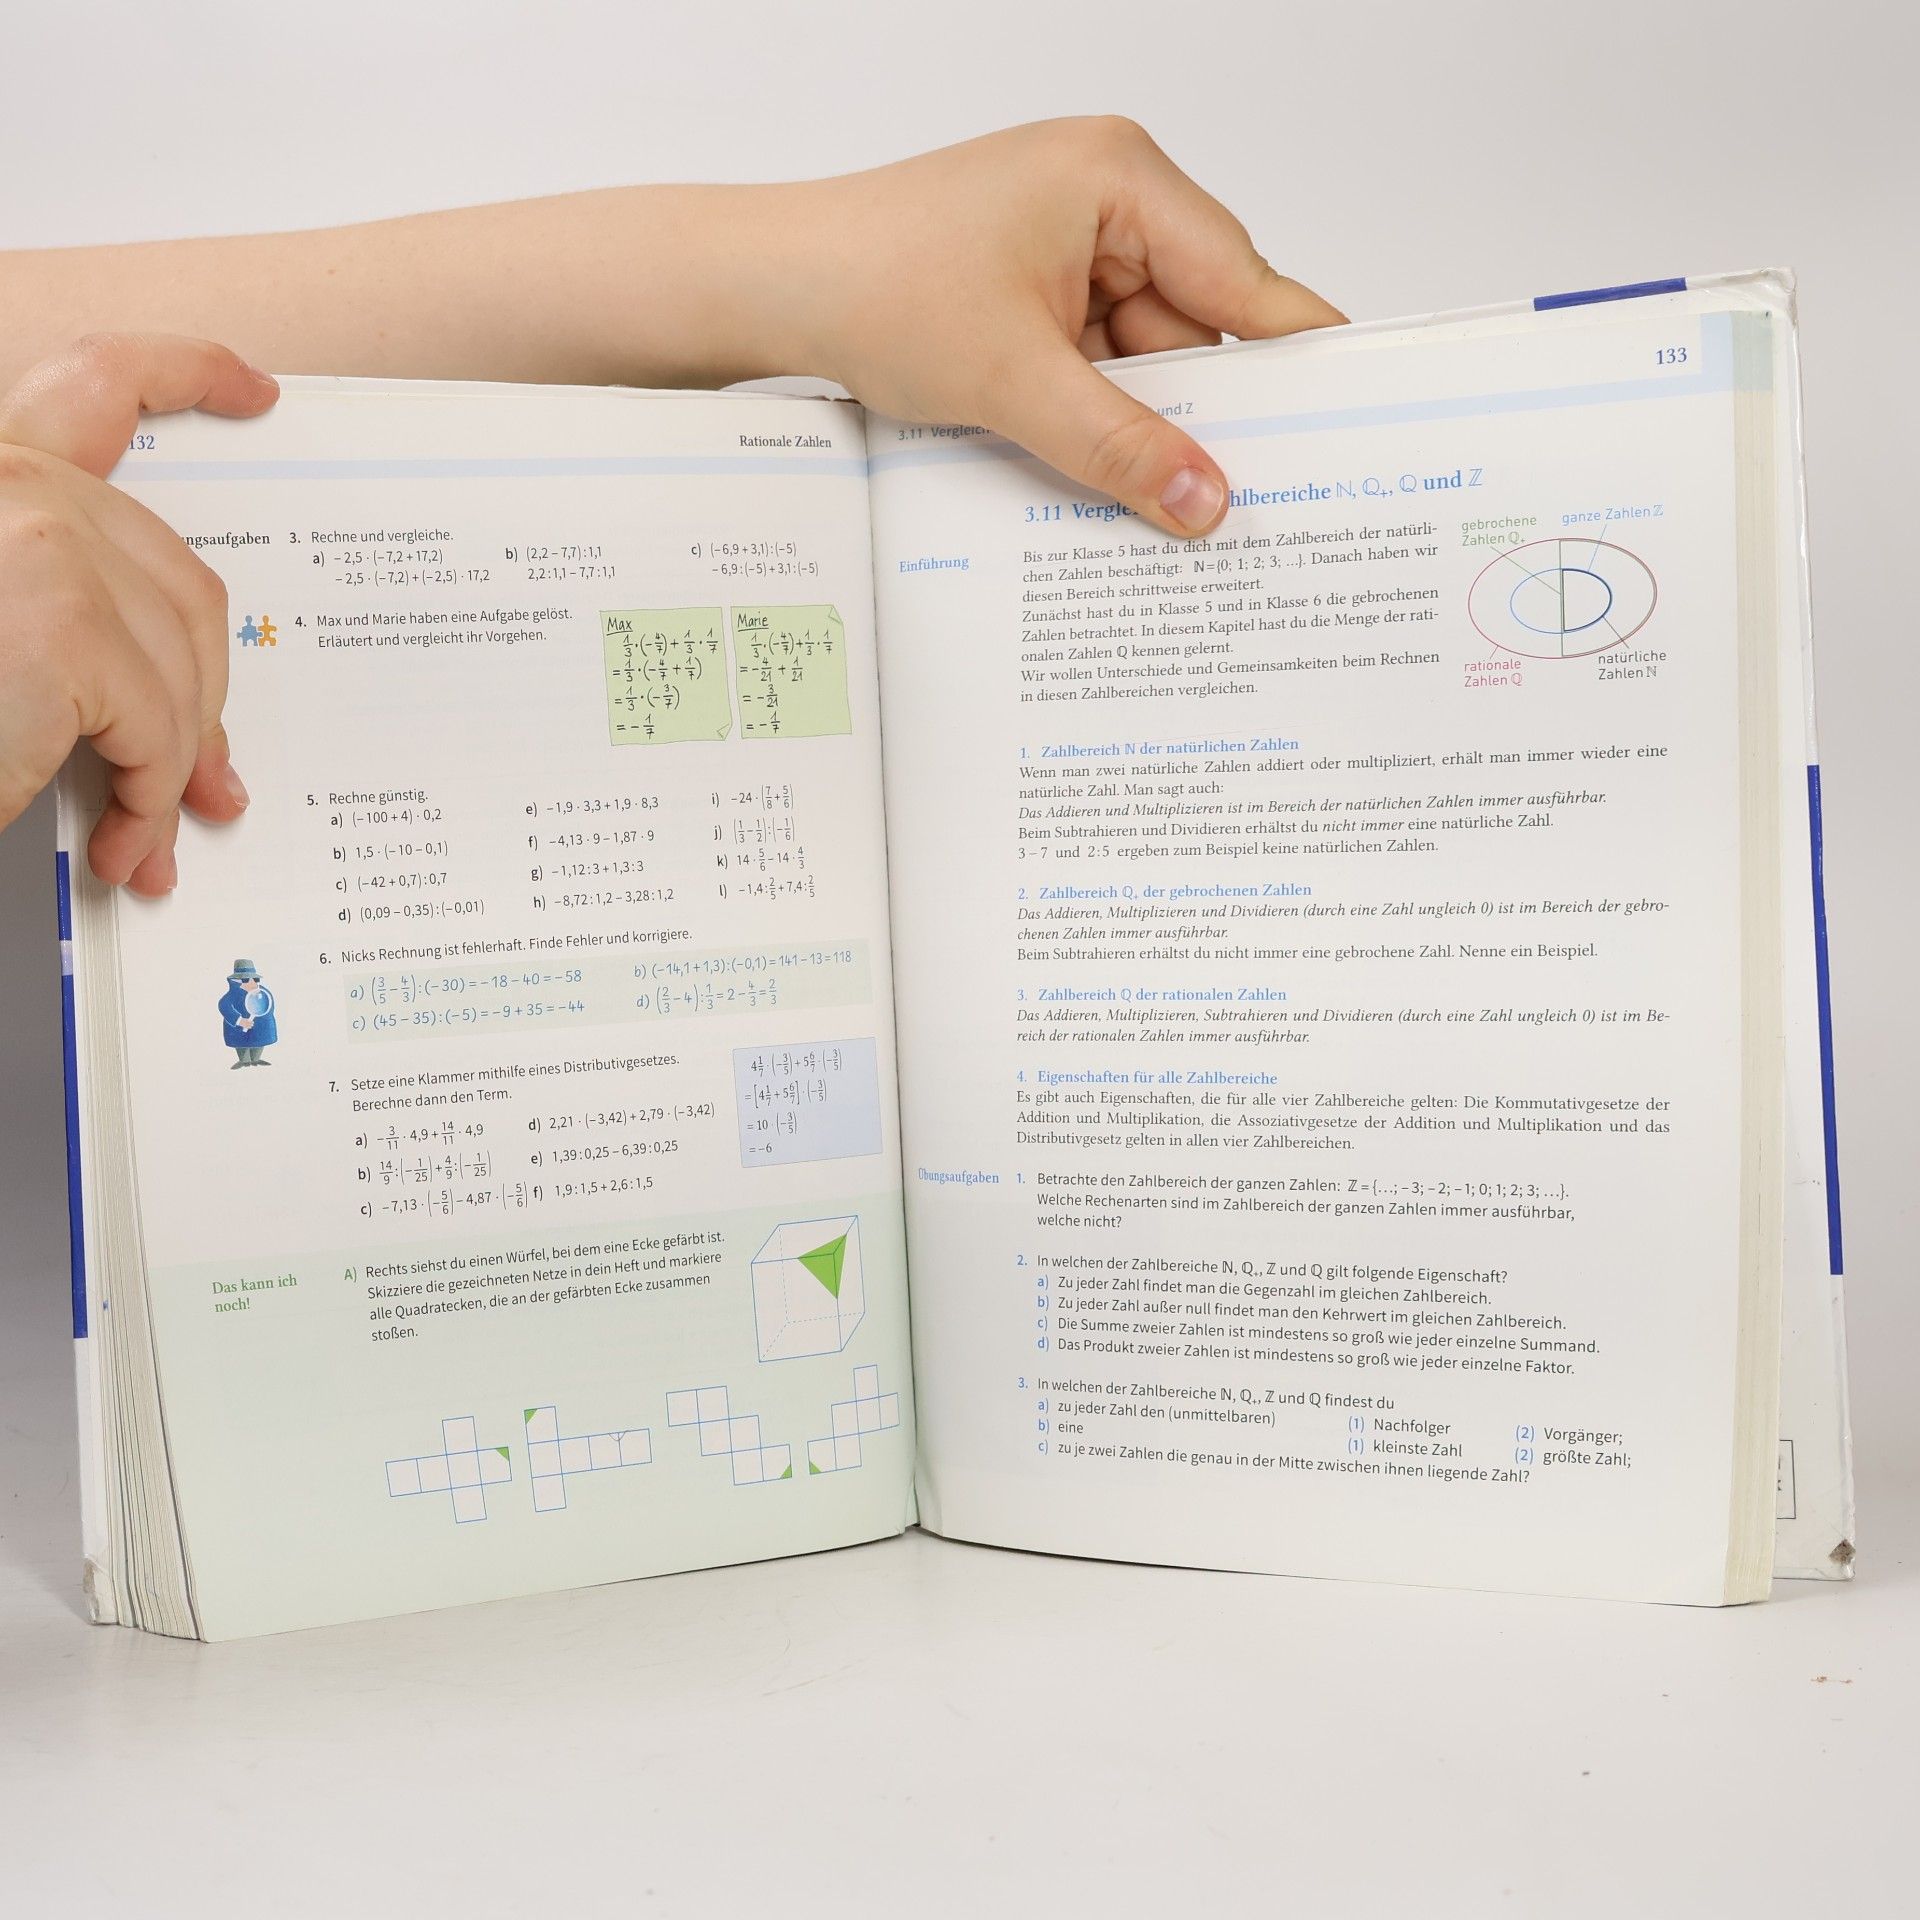 132
Rationale Zahlen
3. Rechne und vergleiche.
a) −2,5 · (−7,2 + 17,2)
−2,5 · (−7,2) + (−2,5) · 17,2
b) (2,2 − 7,7) : 1,1
2,2 : 1,1 − 7,7 : 1,1
c) (−6,9 + 3,1) : (−5)
−6,9 : (−5) + 3,1 : (−5)
4. Max und Marie haben eine Aufgabe gelöst.
Erläutert und vergleicht ihr Vorgehen.
Max
1/3 · (−4/7) + 1/3 · 1/7
= 1/3 · (−4/7 + 1/7)
= 1/3 · (−3/7)
= −1/7
Marie
1/3 · (−4/7) + 1/3 · 1/7
= −4/21 + 1/21
= −3/21
= −1/7
5. Rechne günstig.
a) (−100 + 4) · 0,2
b) 1,5 · (−10 − 0,1)
c) (−42 + 0,7) : 0,7
d) (0,09 − 0,35) : (−0,01)
e) −1,9 · 3,3 + 1,9 · 8,3
f) −4,13 · 9 − 1,87 · 9
g) −1,12 : 3 + 1,3 : 3
h) −8,72 : 1,2 − 3,28 : 1,2
i) −24 · (7/8 + 5/6)
j) (1/3 − 1/2) : (−1/6)
k) 14 · 5/6 − 14 · 4/3
l) −1,4 : 2/5 + 7,4 : 2/5
6. Nicks Rechnung ist fehlerhaft. Finde Fehler und korrigiere.
a) (3/5 − 4/3) : (−30) = −18 − 40 = −58
b) (−14,1 + 1,3) : (−0,1) = 141 − 13 = 118
c) (45 − 35) : (−5) = −9 + 35 = −44
d) (2/3 − 4) : 1/3 = 2 − 4/3 = 2/3
7. Setze eine Klammer mithilfe eines Distributivgesetzes.
Berechne dann den Term.
a) −3/11 · 4,9 + 14/11 · 4,9
b) 14/9 : (−1/25) + 4/9 : (−1/25)
c) −7,13 · (−5/6) − 4,87 · (−5/6)
d) 2,21 · (−3,42) + 2,79 · (−3,42)
e) 1,39 : 0,25 − 6,39 : 0,25
f) 1,9 : 1,5 + 2,6 : 1,5
4 1/7 · (−3/5) + 5 6/7 · (−3/5)
= [4 1/7 + 5 6/7] · (−3/5)
= 10 · (−3/5)
= −6
Das kann ich
noch!
A) Rechts siehst du einen Würfel, bei dem eine Ecke gefärbt ist.
Skizziere die gezeichneten Netze in dein Heft und markiere
alle Quadratecken, die an der gefärbten Ecke zusammen
stoßen.
133
3.11 und Z
3.11 hlbereiche ℕ, ℚ₊, ℚ und ℤ
Einführung
Bis zur Klasse 5 hast du dich mit dem Zahlbereich der natürli-
chen Zahlen beschäftigt: ℕ = {0; 1; 2; 3; …}. Danach haben wir
diesen Bereich schrittweise erweitert.
Zunächst hast du in Klasse 5 und in Klasse 6 die gebrochenen
Zahlen betrachtet. In diesem Kapitel hast du die Menge der rati-
onalen Zahlen ℚ kennen gelernt.
Wir wollen Unterschiede und Gemeinsamkeiten beim Rechnen
in diesen Zahlbereichen vergleichen.
gebrochene
Zahlen ℚ₊
ganze Zahlen ℤ
rationale
Zahlen ℚ
natürliche
Zahlen ℕ
1. Zahlbereich ℕ der natürlichen Zahlen
Wenn man zwei natürliche Zahlen addiert oder multipliziert, erhält man immer wieder eine
natürliche Zahl. Man sagt auch:
Das Addieren und Multiplizieren ist im Bereich der natürlichen Zahlen immer ausführbar.
Beim Subtrahieren und Dividieren erhältst du nicht immer eine natürliche Zahl.
3 − 7 und 2 : 5 ergeben zum Beispiel keine natürlichen Zahlen.
2. Zahlbereich ℚ₊ der gebrochenen Zahlen
Das Addieren, Multiplizieren und Dividieren (durch eine Zahl ungleich 0) ist im Bereich der gebro-
chenen Zahlen immer ausführbar.
Beim Subtrahieren erhältst du nicht immer eine gebrochene Zahl. Nenne ein Beispiel.
3. Zahlbereich ℚ der rationalen Zahlen
Das Addieren, Multiplizieren, Subtrahieren und Dividieren (durch eine Zahl ungleich 0) ist im Be-
reich der rationalen Zahlen immer ausführbar.
4. Eigenschaften für alle Zahlbereiche
Es gibt auch Eigenschaften, die für alle vier Zahlbereiche gelten: Die Kommutativgesetze der
Addition und Multiplikation, die Assoziativgesetze der Addition und Multiplikation und das
Distributivgesetz gelten in allen vier Zahlbereichen.
Übungsaufgaben
1. Betrachte den Zahlbereich der ganzen Zahlen: ℤ = {…; −3; −2; −1; 0; 1; 2; 3; …}.
Welche Rechenarten sind im Zahlbereich der ganzen Zahlen immer ausführbar,
welche nicht?
2. In welchen der Zahlbereiche ℕ, ℚ₊, ℤ und ℚ gilt folgende Eigenschaft?
a) Zu jeder Zahl findet man die Gegenzahl im gleichen Zahlbereich.
b) Zu jeder Zahl außer null findet man den Kehrwert im gleichen Zahlbereich.
c) Die Summe zweier Zahlen ist mindestens so groß wie jeder einzelne Summand.
d) Das Produkt zweier Zahlen ist mindestens so groß wie jeder einzelne Faktor.
3. In welchen der Zahlbereiche ℕ, ℚ₊, ℤ und ℚ findest du
a) zu jeder Zahl den (unmittelbaren) (1) Nachfolger (2) Vorgänger;
b) eine (1) kleinste Zahl (2) größte Zahl;
c) zu je zwei Zahlen die genau in der Mitte zwischen ihnen liegende Zahl?